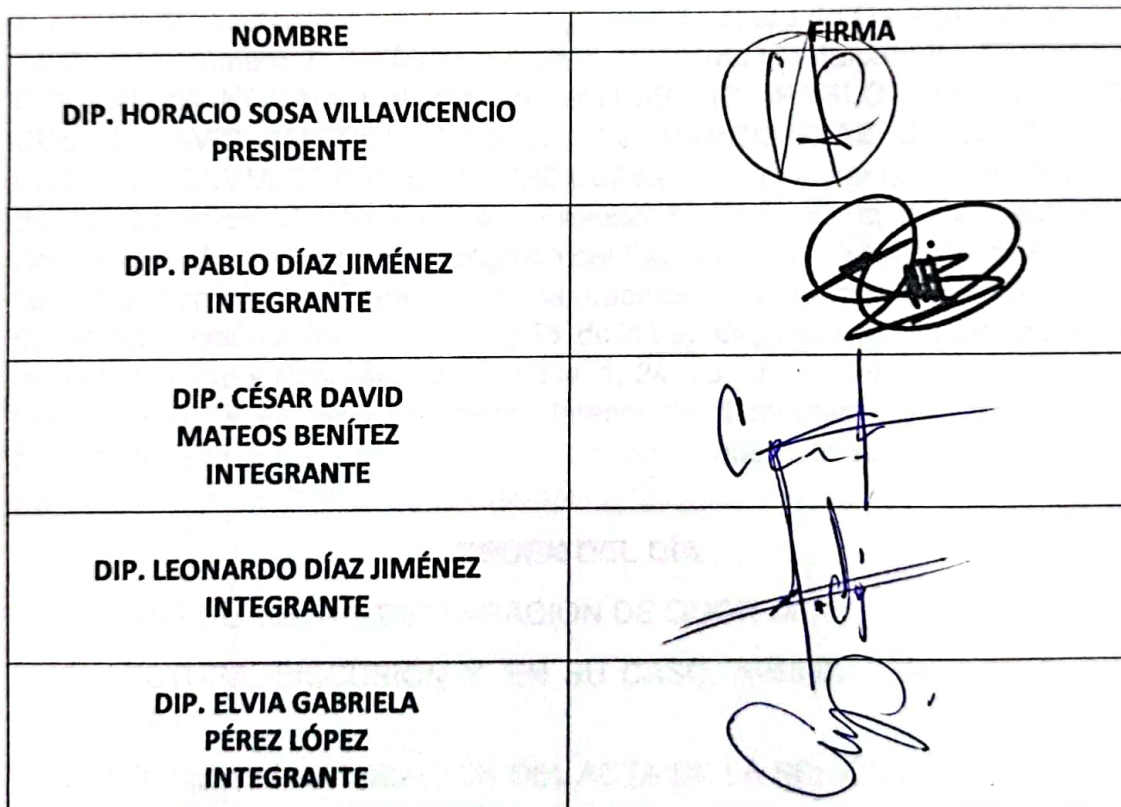 NOMBRE
FIRMA
DIP. HORACIO SOSA VILLAVICENCIO
PRESIDENTE
DIP. PABLO DÍAZ JIMÉNEZ
INTEGRANTE
DIP. CÉSAR DAVID
MATEOS BENÍTEZ
INTEGRANTE
DIP. LEONARDO DÍAZ JIMÉNEZ
INTEGRANTE
DIP. ELVIA GABRIELA
PÉREZ LÓPEZ
INTEGRANTE